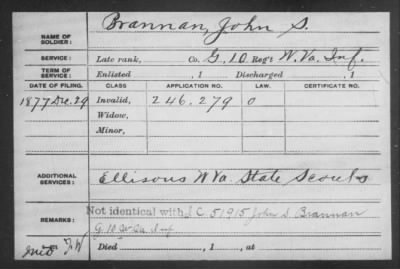 NAME OF SOLDIER: Brannan, John S.
SERVICE: Late rank, Co. G. 10 Reg't W. Va. Inf.
TERM OF SERVICE: Enlisted , 1 Discharged , 1
DATE OF FILING. CLASS APPLICATION NO. LAW. CERTIFICATE NO.
1877 Dec. 29 Invalid, 246.279 O
Widow,
Minor,
ADDITIONAL SERVICES: Ellisons W Va. State Scouts
REMARKS: Not identical with I C. 51915 John S Brannan
G 10 W Va Inf
Died , 1 , at